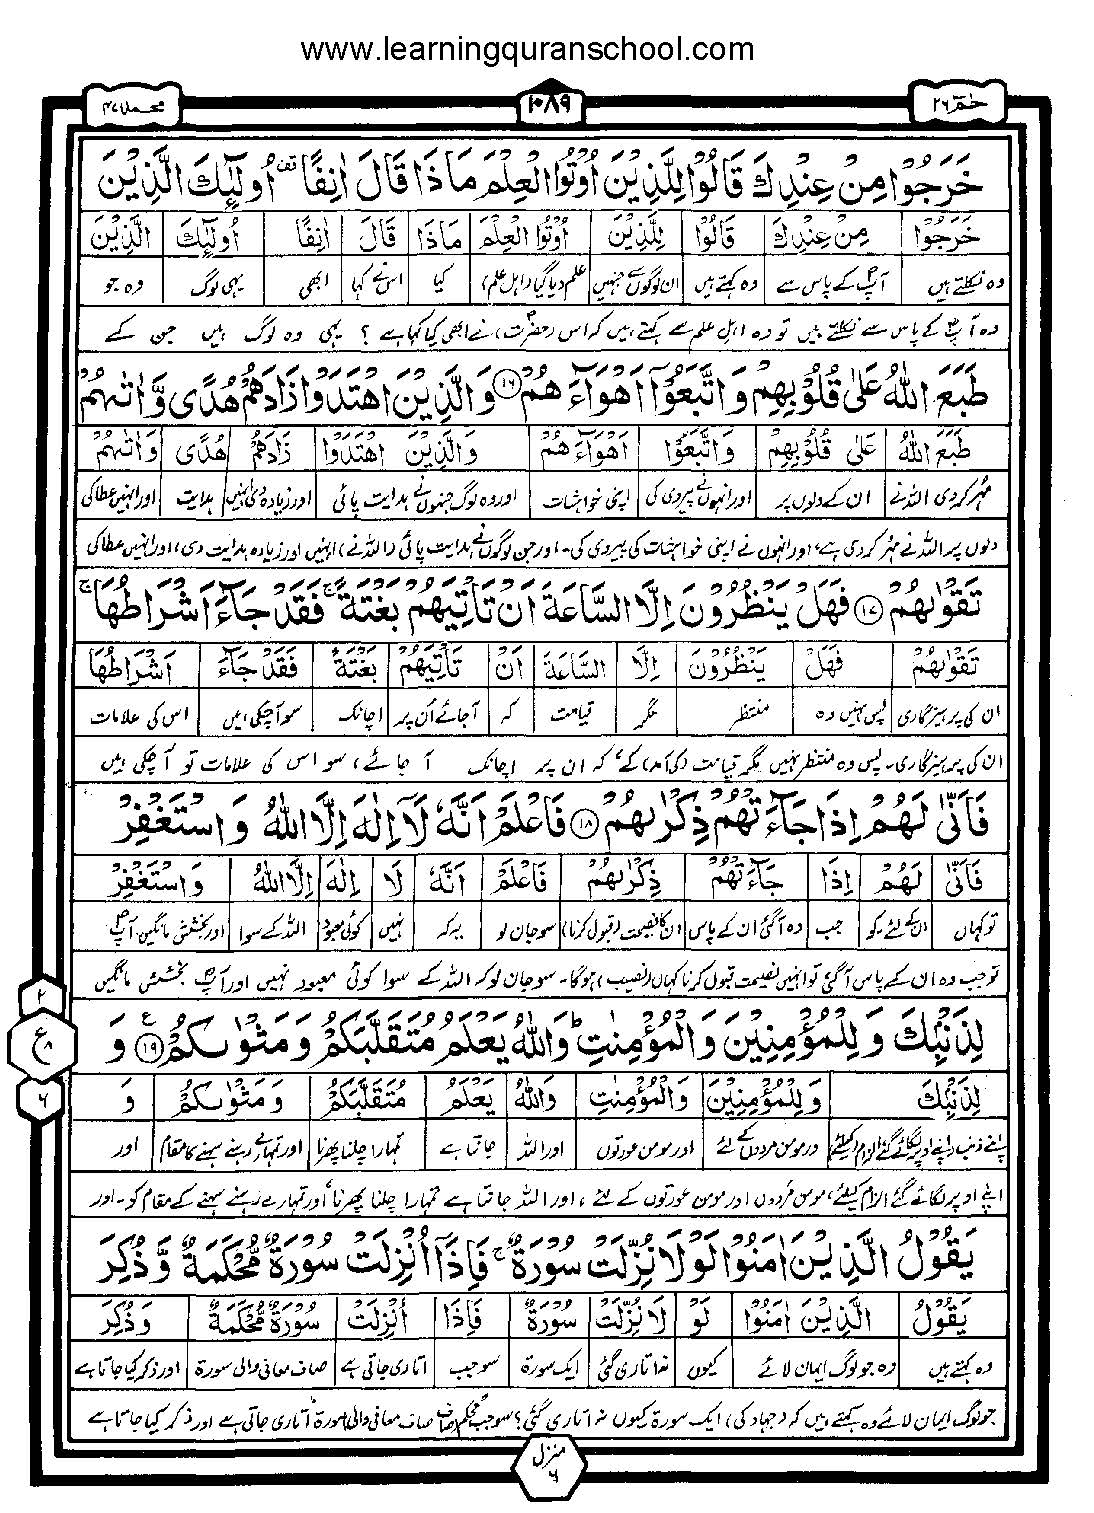 www.learningquranschool.com
حٰمٓ ٢٦
١٠٨٩
محمد ٤٧
خَرَجُوْا مِنْ عِنْدِكَ قَالُوْا لِلَّذِيْنَ اُوْتُوا الْعِلْمَ مَاذَا قَالَ اٰنِفًا ۫ اُولٰٓئِكَ الَّذِيْنَ
خَرَجُوْا مِنْ عِنْدِكَ قَالُوْا لِلَّذِيْنَ اُوْتُوا الْعِلْمَ مَاذَا قَالَ اٰنِفًا اُولٰٓئِكَ الَّذِيْنَ
وہ نکلتے ہیں آپؐ کے پاس سے وہ کہتے ہیں ان لوگوں سے جنہیں علم دیا گیا (اہل علم) کیا اس نے کہا ابھی یہی لوگ وہ جو
وہ آپؐ کے پاس سے نکلتے ہیں تو وہ اہل علم سے کہتے ہیں کہ اس (حضرتؐ) نے ابھی کیا کہا ہے ؟ یہی وہ لوگ ہیں جن کے
طَبَعَ اللّٰهُ عَلٰى قُلُوْبِهِمْ وَاتَّبَعُوْٓا اَهْوَآءَهُمْ ۝١٦ وَالَّذِيْنَ اهْتَدَوْا زَادَهُمْ هُدًى وَّاٰتٰىهُمْ
طَبَعَ اللّٰهُ عَلٰى قُلُوْبِهِمْ وَاتَّبَعُوْٓا اَهْوَآءَهُمْ وَالَّذِيْنَ اهْتَدَوْا زَادَهُمْ هُدًى وَاٰتٰىهُمْ
مہر کر دی اللہ نے ان کے دلوں پر اور انہوں نے پیروی کی اپنی خواہشات اور وہ لوگ جنہوں نے ہدایت پائی اور زیادہ دی انہیں ہدایت اور انہیں عطا کی
دلوں پر اللہ نے مہر کر دی ہے، اور انہوں نے اپنی خواہشات کی پیروی کی۔ اور جن لوگوں نے ہدایت پائی (اللہ نے) انہیں اور زیادہ ہدایت دی، اور انہیں عطا کی
تَقْوٰىهُمْ ۝١٧ فَهَلْ يَنْظُرُوْنَ اِلَّا السَّاعَةَ اَنْ تَاْتِيَهُمْ بَغْتَةً ۚ فَقَدْ جَآءَ اَشْرَاطُهَا ۚ
تَقْوٰىهُمْ فَهَلْ يَنْظُرُوْنَ اِلَّا السَّاعَةَ اَنْ تَاْتِيَهُمْ بَغْتَةً فَقَدْ جَآءَ اَشْرَاطُهَا
ان کی پرہیزگاری پس نہیں وہ منتظر مگر قیامت کہ آجائے اُن پر اچانک سو آچکی ہیں اس کی علامات
ان کی پرہیزگاری۔ پس وہ منتظر نہیں مگر قیامت (کی آمد) کے، کہ ان پر اچانک آ جائے، سو اس کی علامات تو آ چکی ہیں
فَاَنّٰى لَهُمْ اِذَا جَآءَتْهُمْ ذِكْرٰىهُمْ ۝١٨ فَاعْلَمْ اَنَّهٗ لَآ اِلٰهَ اِلَّا اللّٰهُ وَاسْتَغْفِرْ
فَاَنّٰى لَهُمْ اِذَا جَآءَتْهُمْ ذِكْرٰىهُمْ فَاعْلَمْ اَنَّهٗ لَا اِلٰهَ اِلَّا اللّٰهُ وَاسْتَغْفِرْ
تو کہاں ان کے لئے۔ کو جب وہ آگئی ان کے پاس ان کا نصیحت (قبول کرنا) سو جان لو یہ کہ نہیں کوئی معبود اللہ کے سوا اور بخشش مانگیں آپؐ
تو جب وہ ان کے پاس آگئی تو انہیں نصیحت قبول کرنا کہاں (نصیب) ہوگا۔ سو جان لو کہ اللہ کے سوا کوئی معبود نہیں اور آپؐ بخشش مانگیں
لِذَنْۢبِكَ وَلِلْمُؤْمِنِيْنَ وَالْمُؤْمِنٰتِ ؕ وَاللّٰهُ يَعْلَمُ مُتَقَلَّبَكُمْ وَمَثْوٰىكُمْ ۝١٩ ع وَ
٢
ع ٨
٦
لِذَنْۢبِكَ وَلِلْمُؤْمِنِيْنَ وَالْمُؤْمِنٰتِ وَاللّٰهُ يَعْلَمُ مُتَقَلَّبَكُمْ وَمَثْوٰىكُمْ وَ
اور مومن مردوں کے لئے اور مومن عورتوں اور اللہ جانتا ہے تمہارا چلنا پھرنا اور تمہارے رہنے سہنے کا مقام اور
اپنے اوپر لگائے گئے الزام کیلئے، مومن مردوں اور مومن عورتوں کے لئے ، اور اللہ جانتا ہے تمہارا چلنا پھرنا اور تمہارے رہنے سہنے کے مقام کو۔ اور
يَقُوْلُ الَّذِيْنَ اٰمَنُوْا لَوْلَا نُزِّلَتْ سُوْرَةٌ ۚ فَاِذَآ اُنْزِلَتْ سُوْرَةٌ مُّحْكَمَةٌ وَّذُكِرَ
يَقُوْلُ الَّذِيْنَ اٰمَنُوْا لَوْ لَا نُزِّلَتْ سُوْرَةٌ فَاِذَا اُنْزِلَتْ سُوْرَةٌ مُّحْكَمَةٌ وَّذُكِرَ
وہ کہتے ہیں وہ جو لوگ ایمان لائے کیوں نہ اتاری گئی ایک سورۃ سو جب اتاری جاتی ہے صاف معانی والی سورۃ اور ذکر کیا جاتا ہے
جو لوگ ایمان لائے وہ کہتے ہیں کہ (جہاد کی) ایک سورۃ کیوں نہ اتاری گئی؟ سو جب محکم صاف صاف معانی والی سورۃ اتاری جاتی ہے اور ذکر کیا جاتا ہے
منزل ٦